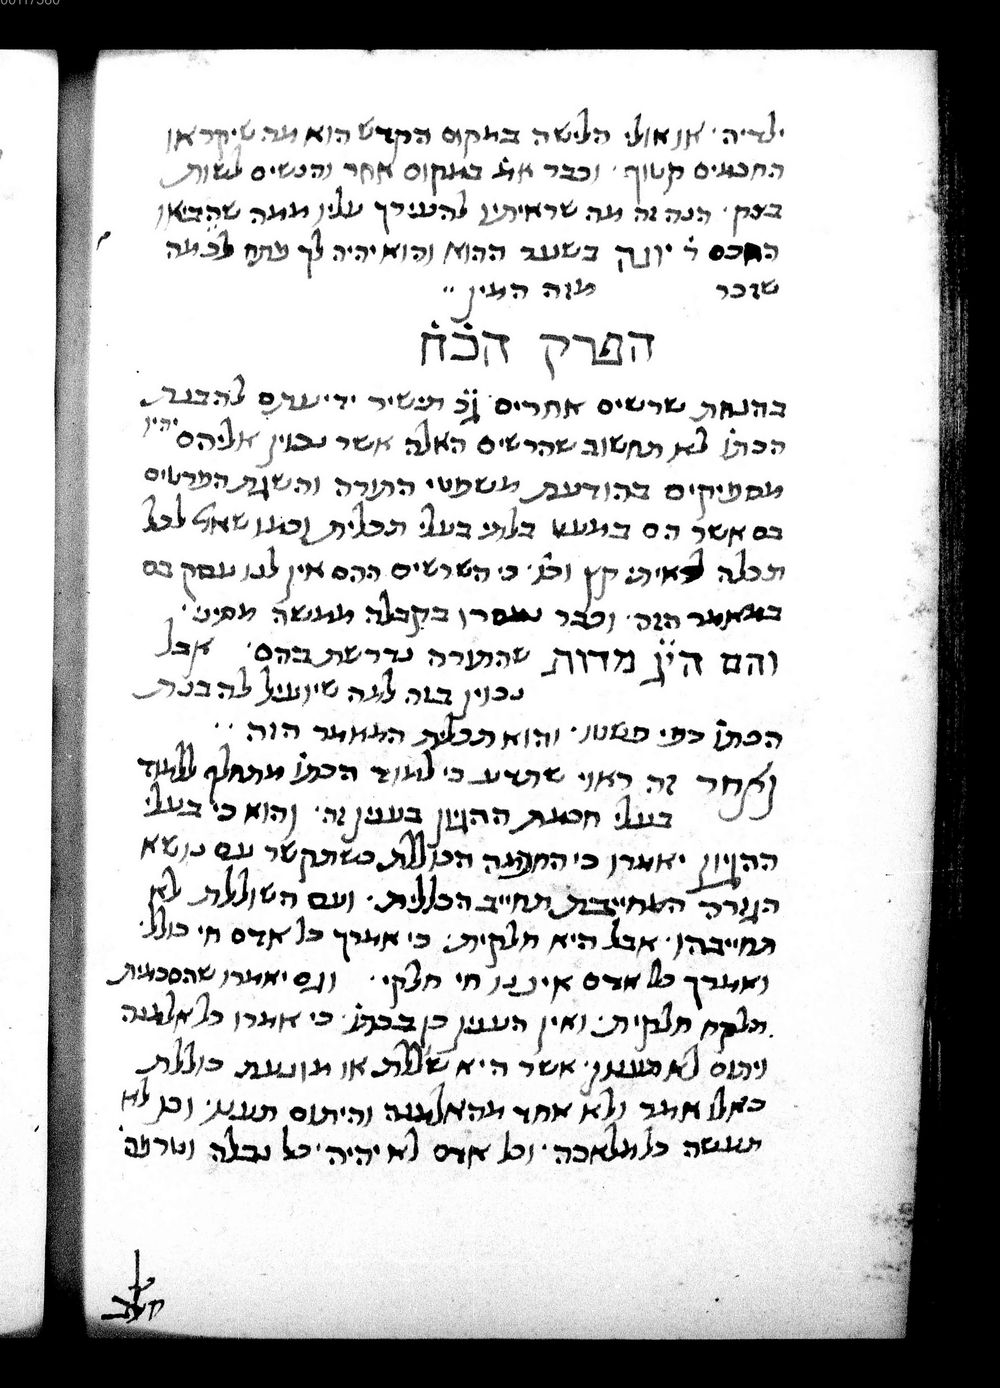 ילדיה׳ או אולי הלישה במקום הקדש הוא מה שיקראו
החכמים קטוף׳ וכבר את׳ במקום אחר והנשים לשות
בצק׳ הנה זה מה שראיתי להעירך עליו ממה שהביאו
החכם ר׳ יונה בשער ההוא והוא יהיה לך מפתח לכל מה
שזכר מזה המין
הפרק הכ׳ח
בהנחת שרשים אחרים ג׳׳כ תכשיר ידיעתם להבנת
הכתו׳ לא תחשוב שהרשים האלה אשר נכוין אליהם יהיו
מספיקים בהודעת משפטי התורה והשגת הפרטים
בם אשר הם במעט בלתי בעלי תכלית וכמו שאמ׳ לכל
תכלה ראיתי קץ וכו׳ כי השרשים ההם אין לנו עסק בם
במאמר הזה׳ וכבר נמסרו בקבלה ממשה מסיני׳
והם הי׳׳ג מדות שהתורה נדרשת בהם׳ אבל
נכוין בזה למה שיועיל להבנת
הכתו׳ כפי פשטו׳ והוא תכלית המאמר הזה
ואחר זה ראוי שתדע כי למוד הכתו׳ מתחלף ללמוד
בעלי חכמת ההגיון בענין זה׳ והוא כי בעלי
ההגיון יאמרו כי החומה הכוללת כשתקשר עם נושא
הגזרה המחייבת תחייב הכללית׳ ועם השוללת לא
תחייבהו׳ אבל היא חלקית׳ כי אמרך כל אדם חי כולל׳
ואמרך כל אדם איננו חי חלקי׳ וגם יאמרו שהסכמית
תלקח חלקית׳ ואין הענין כן בכתו׳ כי אמרו כל אלמנה
ויתום לא תענון׳ אשר היא שׁוללת או מונעת כוללת
כאלו אמר ולא אחד מהאלמנה והיתום תענו׳ וכן לא
תעשה כל מלאכה׳ וכל אדם לא יהיה׳ כל נבלה וטרפה